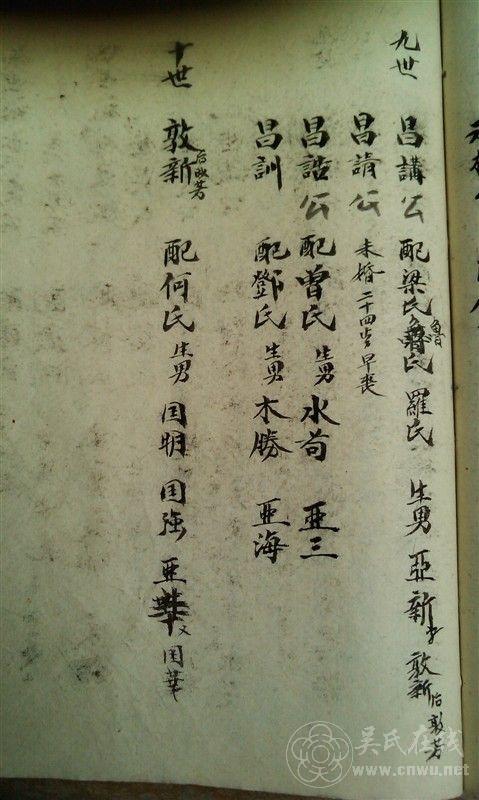 九世 昌講公 配梁氏 魯氏 羅氏 生男 亞新 敦新
昌請公 未婚二十四岁早丧
昌誥公 配曾氏 生男 水苟 亚三
昌訓 配鄧氏 生男 木勝 亚海
十世 敦新 配何氏 生男 国明 国強 亚華 又国華
吴氏在线
www.cnwu.net